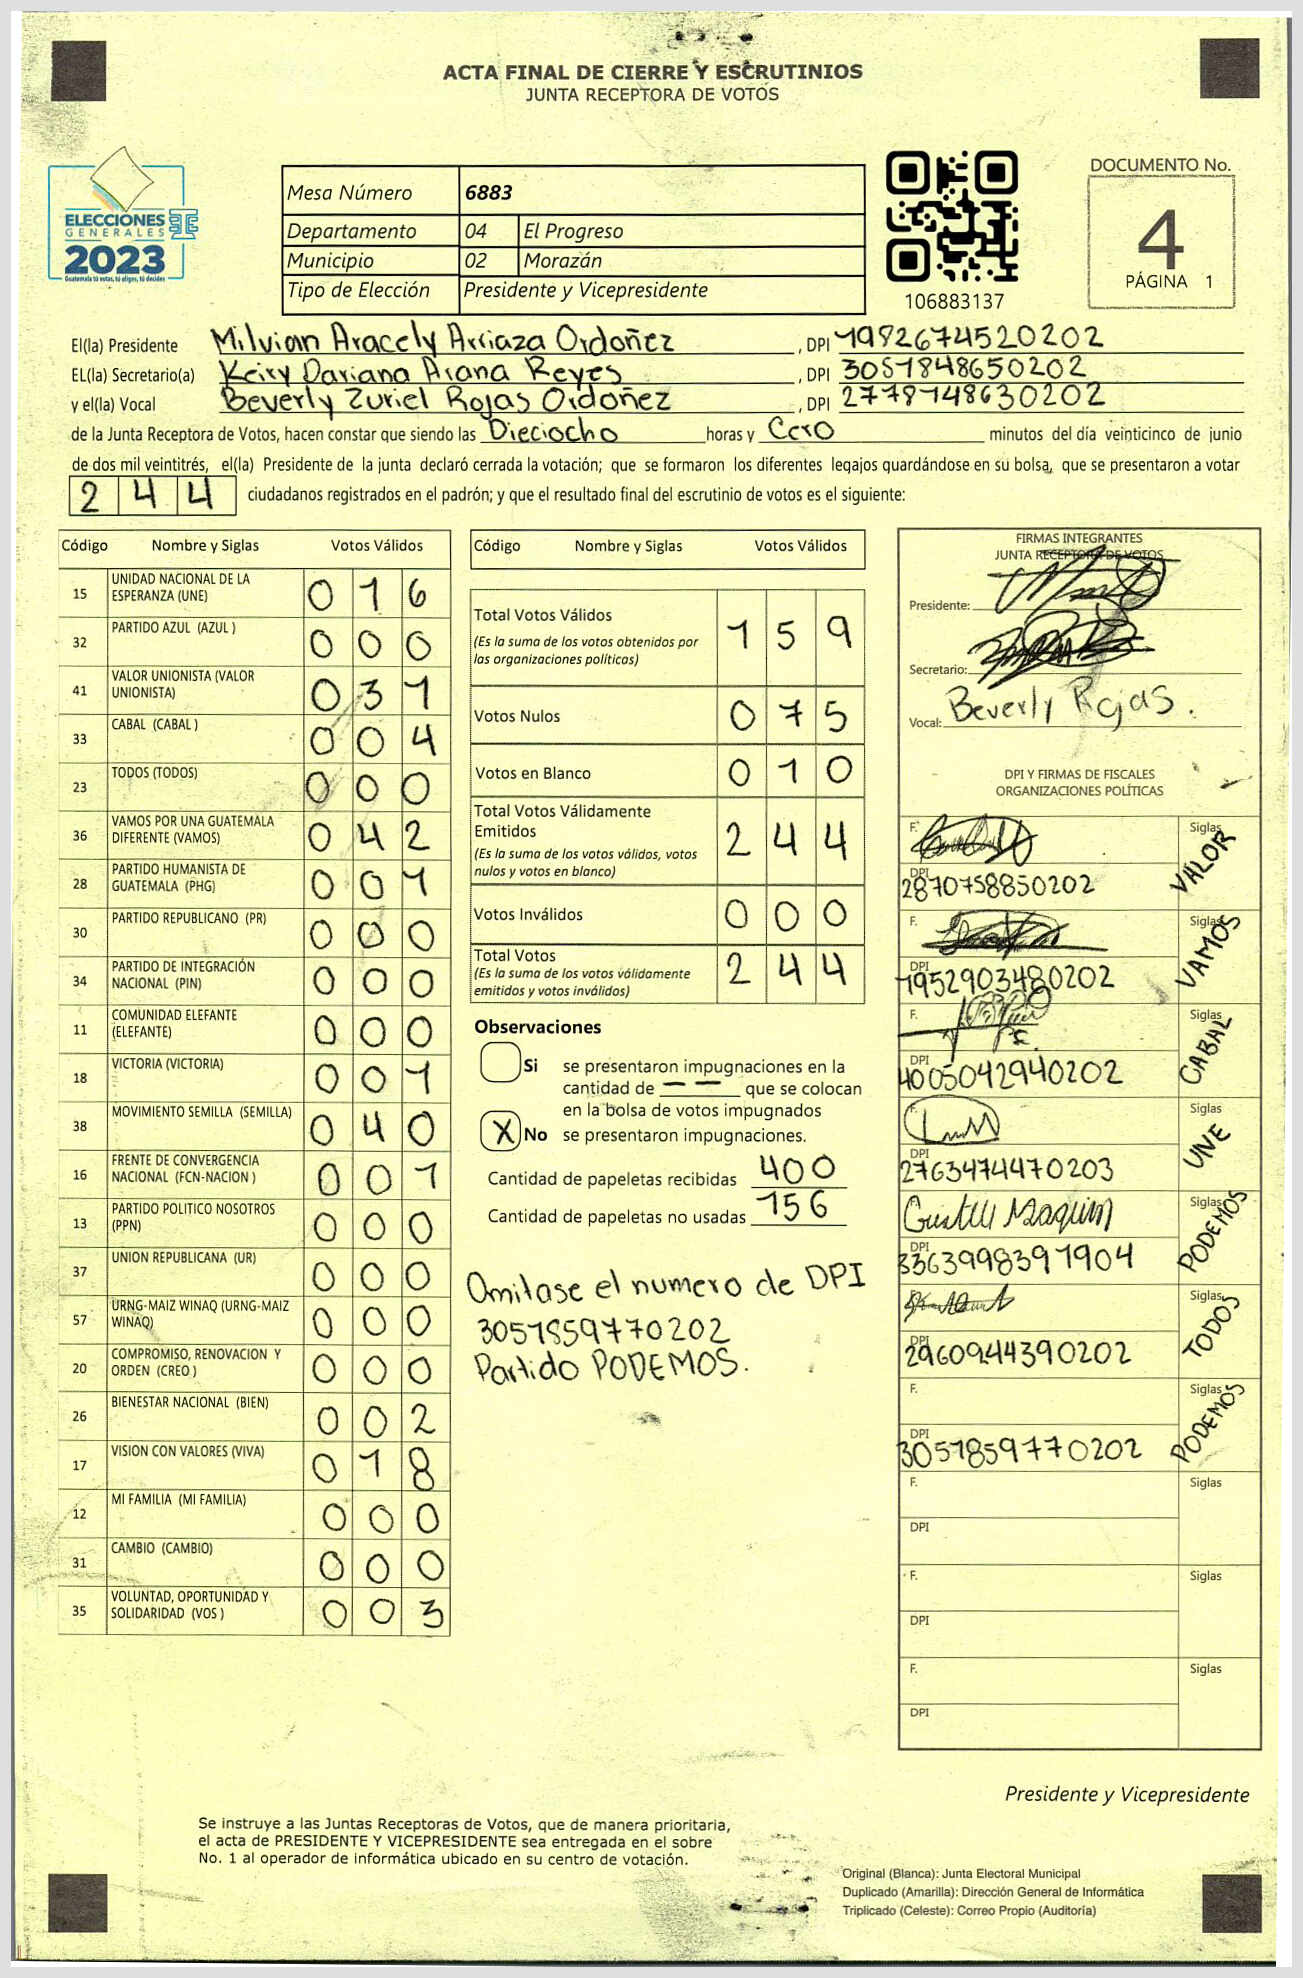 ACTA FINAL DE CIERRE Y ESCRUTINIOS
JUNTA RECEPTORA DE VOTOS
ELECCIONES
GENERALES
2023
Guatemala tú votas, tú eliges, tú decides
Mesa Número 6883
Departamento 04 El Progreso
Municipio 02 Morazán
Tipo de Elección Presidente y Vicepresidente
106883137
DOCUMENTO No.
4
PÁGINA 1
El(la) Presidente Milvian Aracely Arriaza Ordoñez, DPI 1982674520202
EL(la) Secretario(a) Keiry Dariana Arana Reyes, DPI 3051848650202
y el(la) Vocal Beverly Zuriel Rojas Ordoñez, DPI 2778148630202
de la Junta Receptora de Votos, hacen constar que siendo las Dieciocho horas y Cero minutos del día veinticinco de junio
de dos mil veintitrés, el(la) Presidente de la junta declaró cerrada la votación; que se formaron los diferentes legajos guardándose en su bolsa, que se presentaron a votar
244 ciudadanos registrados en el padrón; y que el resultado final del escrutinio de votos es el siguiente:
Código Nombre y Siglas Votos Válidos
15 UNIDAD NACIONAL DE LA ESPERANZA (UNE) 016
32 PARTIDO AZUL (AZUL ) 000
41 VALOR UNIONISTA (VALOR UNIONISTA) 031
33 CABAL (CABAL ) 004
23 TODOS (TODOS) 000
36 VAMOS POR UNA GUATEMALA DIFERENTE (VAMOS) 042
28 PARTIDO HUMANISTA DE GUATEMALA (PHG) 001
30 PARTIDO REPUBLICANO (PR) 000
34 PARTIDO DE INTEGRACIÓN NACIONAL (PIN) 000
11 COMUNIDAD ELEFANTE (ELEFANTE) 000
18 VICTORIA (VICTORIA) 001
38 MOVIMIENTO SEMILLA (SEMILLA) 040
16 FRENTE DE CONVERGENCIA NACIONAL (FCN-NACION ) 001
13 PARTIDO POLITICO NOSOTROS (PPN) 000
37 UNION REPUBLICANA (UR) 000
57 URNG-MAIZ WINAQ (URNG-MAIZ WINAQ) 000
20 COMPROMISO, RENOVACION Y ORDEN (CREO ) 000
26 BIENESTAR NACIONAL (BIEN) 002
17 VISION CON VALORES (VIVA) 018
12 MI FAMILIA (MI FAMILIA) 000
31 CAMBIO (CAMBIO) 000
35 VOLUNTAD, OPORTUNIDAD Y SOLIDARIDAD (VOS ) 003
Código Nombre y Siglas Votos Válidos
Total Votos Válidos 159
(Es la suma de los votos obtenidos por
las organizaciones políticas)
Votos Nulos 075
Votos en Blanco 010
Total Votos Válidamente
Emitidos 244
(Es la suma de los votos válidos, votos
nulos y votos en blanco)
Votos Inválidos 000
Total Votos 244
(Es la suma de los votos válidamente
emitidos y votos inválidos)
Observaciones
Si se presentaron impugnaciones en la
cantidad de — — que se colocan
en la bolsa de votos impugnados
X No se presentaron impugnaciones.
Cantidad de papeletas recibidas 400
Cantidad de papeletas no usadas 156
Omitase el numero de DPI
3051859770202
Partido PODEMOS.
FIRMAS INTEGRANTES
JUNTA RECEPTORA DE VOTOS
Presidente:
Secretario:
Vocal: Beverly Rojas.
DPI Y FIRMAS DE FISCALES
ORGANIZACIONES POLÍTICAS
F. Siglas VALOR
DPI 2870758850202
F. Siglas VAMOS
DPI 1952903480202
F. Siglas CABAL
DPI 4005042940202
F. Siglas UNE
DPI 2763474470203
F. Siglas PODEMOS
DPI 3363998391904
F. Siglas TODOS
DPI 2960944390202
F. Siglas PODEMOS
DPI 3051859770202
F. Siglas
DPI
F. Siglas
DPI
F. Siglas
DPI
Presidente y Vicepresidente
Se instruye a las Juntas Receptoras de Votos, que de manera prioritaria,
el acta de PRESIDENTE Y VICEPRESIDENTE sea entregada en el sobre
No. 1 al operador de informática ubicado en su centro de votación.
Original (Blanca): Junta Electoral Municipal
Duplicado (Amarilla): Dirección General de Informática
Triplicado (Celeste): Correo Propio (Auditoría)